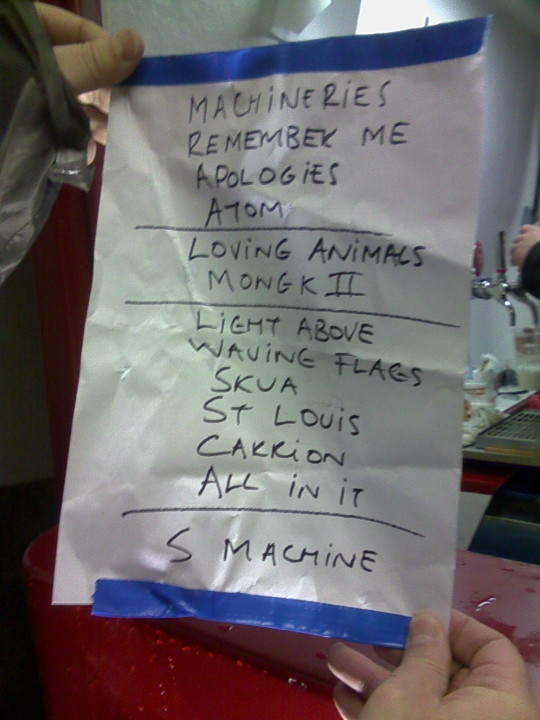 MACHINERIES
REMEMBER ME
APOLOGIES
ATOM
LOVING ANIMALS
MONGK II
LIGHT ABOVE
WAVING FLAGS
SKUA
ST LOUIS
CARRION
ALL IN IT
S MACHINE